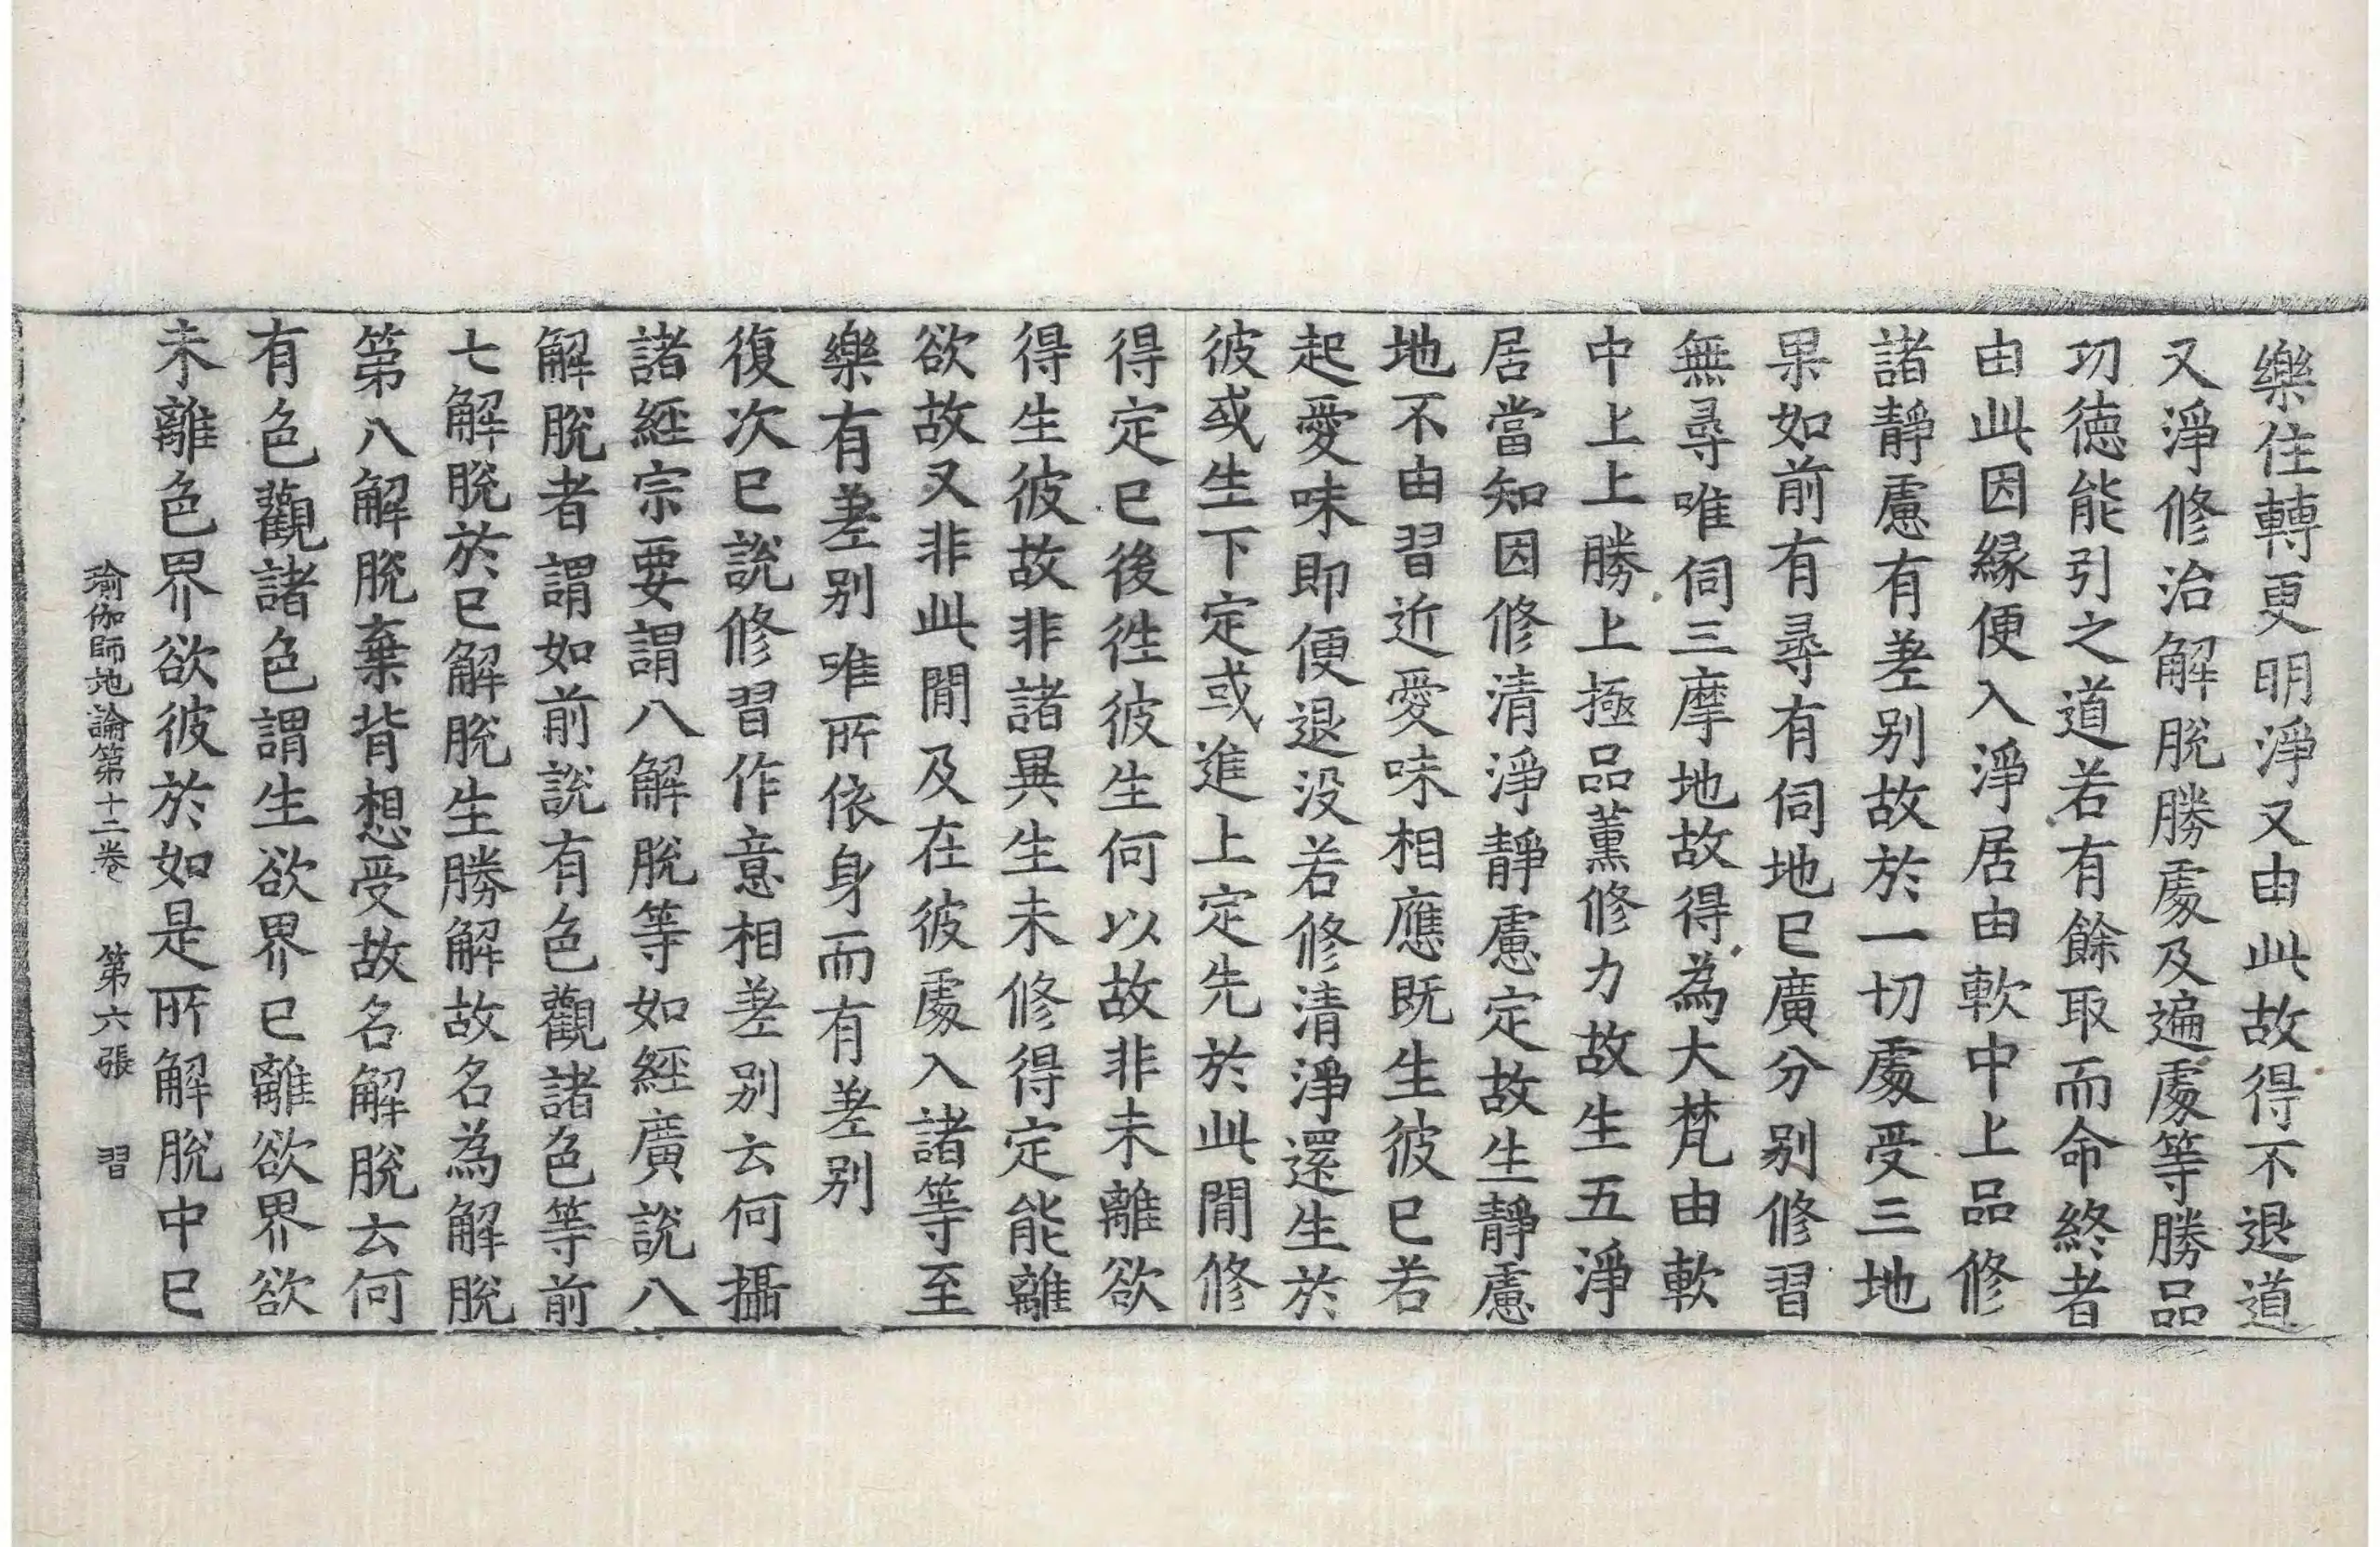 樂住轉更明淨又由此故得不退道
又淨修治解脫勝處及遍處等勝品
功德能引之道若有餘取而命終者
由此因緣便入淨居由軟中上品修
諸靜慮有差別故於一切處受三地
果如前有尋有伺地已廣分別修習
無尋唯伺三摩地故得為大梵由軟
中上上勝上極品薰修力故生五淨
居當知因修清淨靜慮定故生靜慮
地不由習近愛味相應既生彼已若
起愛味即便退没若修清淨還生於
彼或生下定或進上定先於此閒修
得定已後往彼生何以故非未離欲
得生彼故非諸異生未修得定能離
欲故又非此閒及在彼處入諸等至
樂有差別唯所依身而有差別
復次已說修習作意相差別云何攝
諸經宗要謂八解脫等如經廣說八
解脫者謂如前說有色觀諸色等前
七解脫於已解脫生勝解故名為解脫
第八解脫棄背想受故名解脫云何
有色觀諸色謂生欲界已離欲界欲
未離色界欲彼於如是所解脫中已
瑜伽師地論第十二卷 第六張 習